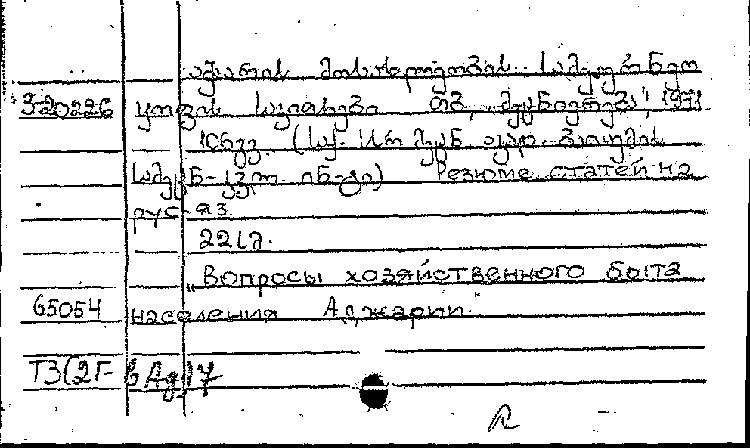 აჭარის მოსახლეობის სამეურნეო
3-20226 ყოფის საკითხები თბ., "მეცნიერება", 1971
106გვ. (საქ. სსრ მეცნ. აკად. ბათუმის
სამეცნ-კვლ. ინ-ტი) Резюме статей на
рус-яз
221გ.
"Вопросы хозяйственного быта
65054 населения Аджарии"
Т3(2Г-6Ад)7